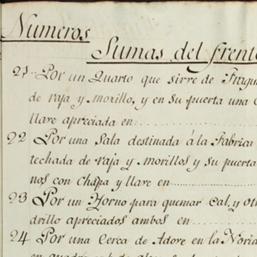 Numeros
Sumas del frente
21 Por un Quarto que sirve de
de raja y morillo, y en su puerta una
llave apreciada en
22 Por una Sala destinada á la Fabrica
techada de raja y morillos y su puerta
nos con chapa y llave en
23 Por un Horno para quemar Cal, y
drillo apreciados ambos en
24 Por una Cerca de Adove en la Noria